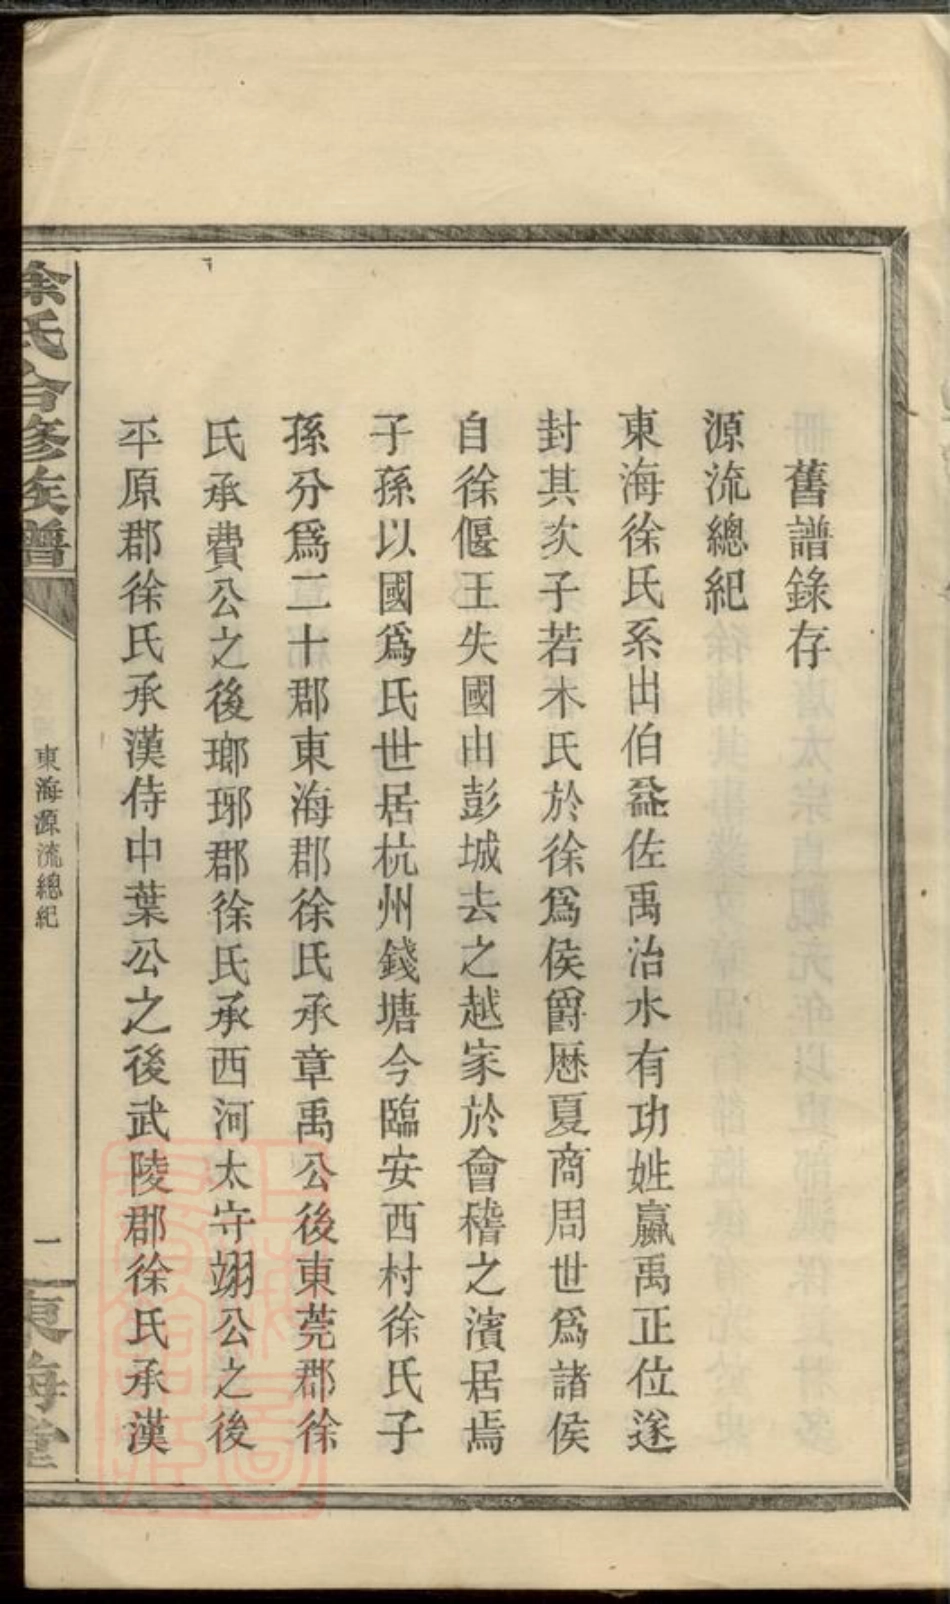 舊譜錄存
源流總紀
東海徐氏系出伯益佐禹治水有功姓嬴禹正位遂
封其次子若木氏於徐爲侯爵歷夏商周世爲諸侯
自徐偃王失國由彭城去之越家於會稽之濱居焉
子孫以國爲氏世居杭州錢塘今臨安西村徐氏子
孫分爲二十郡東海郡徐氏承章禹公後東莞郡徐
氏承費公之後瑯琊郡徐氏承西河太守翊公之後
平原郡徐氏承漢侍中葉公之後武陵郡徐氏承漢
徐氏合修族譜
東海源流總紀
一
東海堂